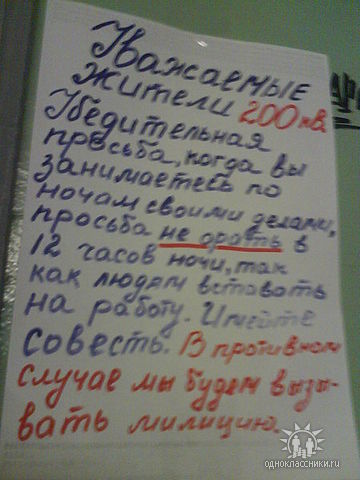 Уважаемые
жители 200 кв.
Убедительная
просьба, когда вы
занимаетесь по
ночам своими делами,
просьба не орать в
12 часов ночи, так
как людям вставать
на работу. Имейте
совесть. В противном
случае мы будем вызы-
вать милицию.
одноклассники.ru